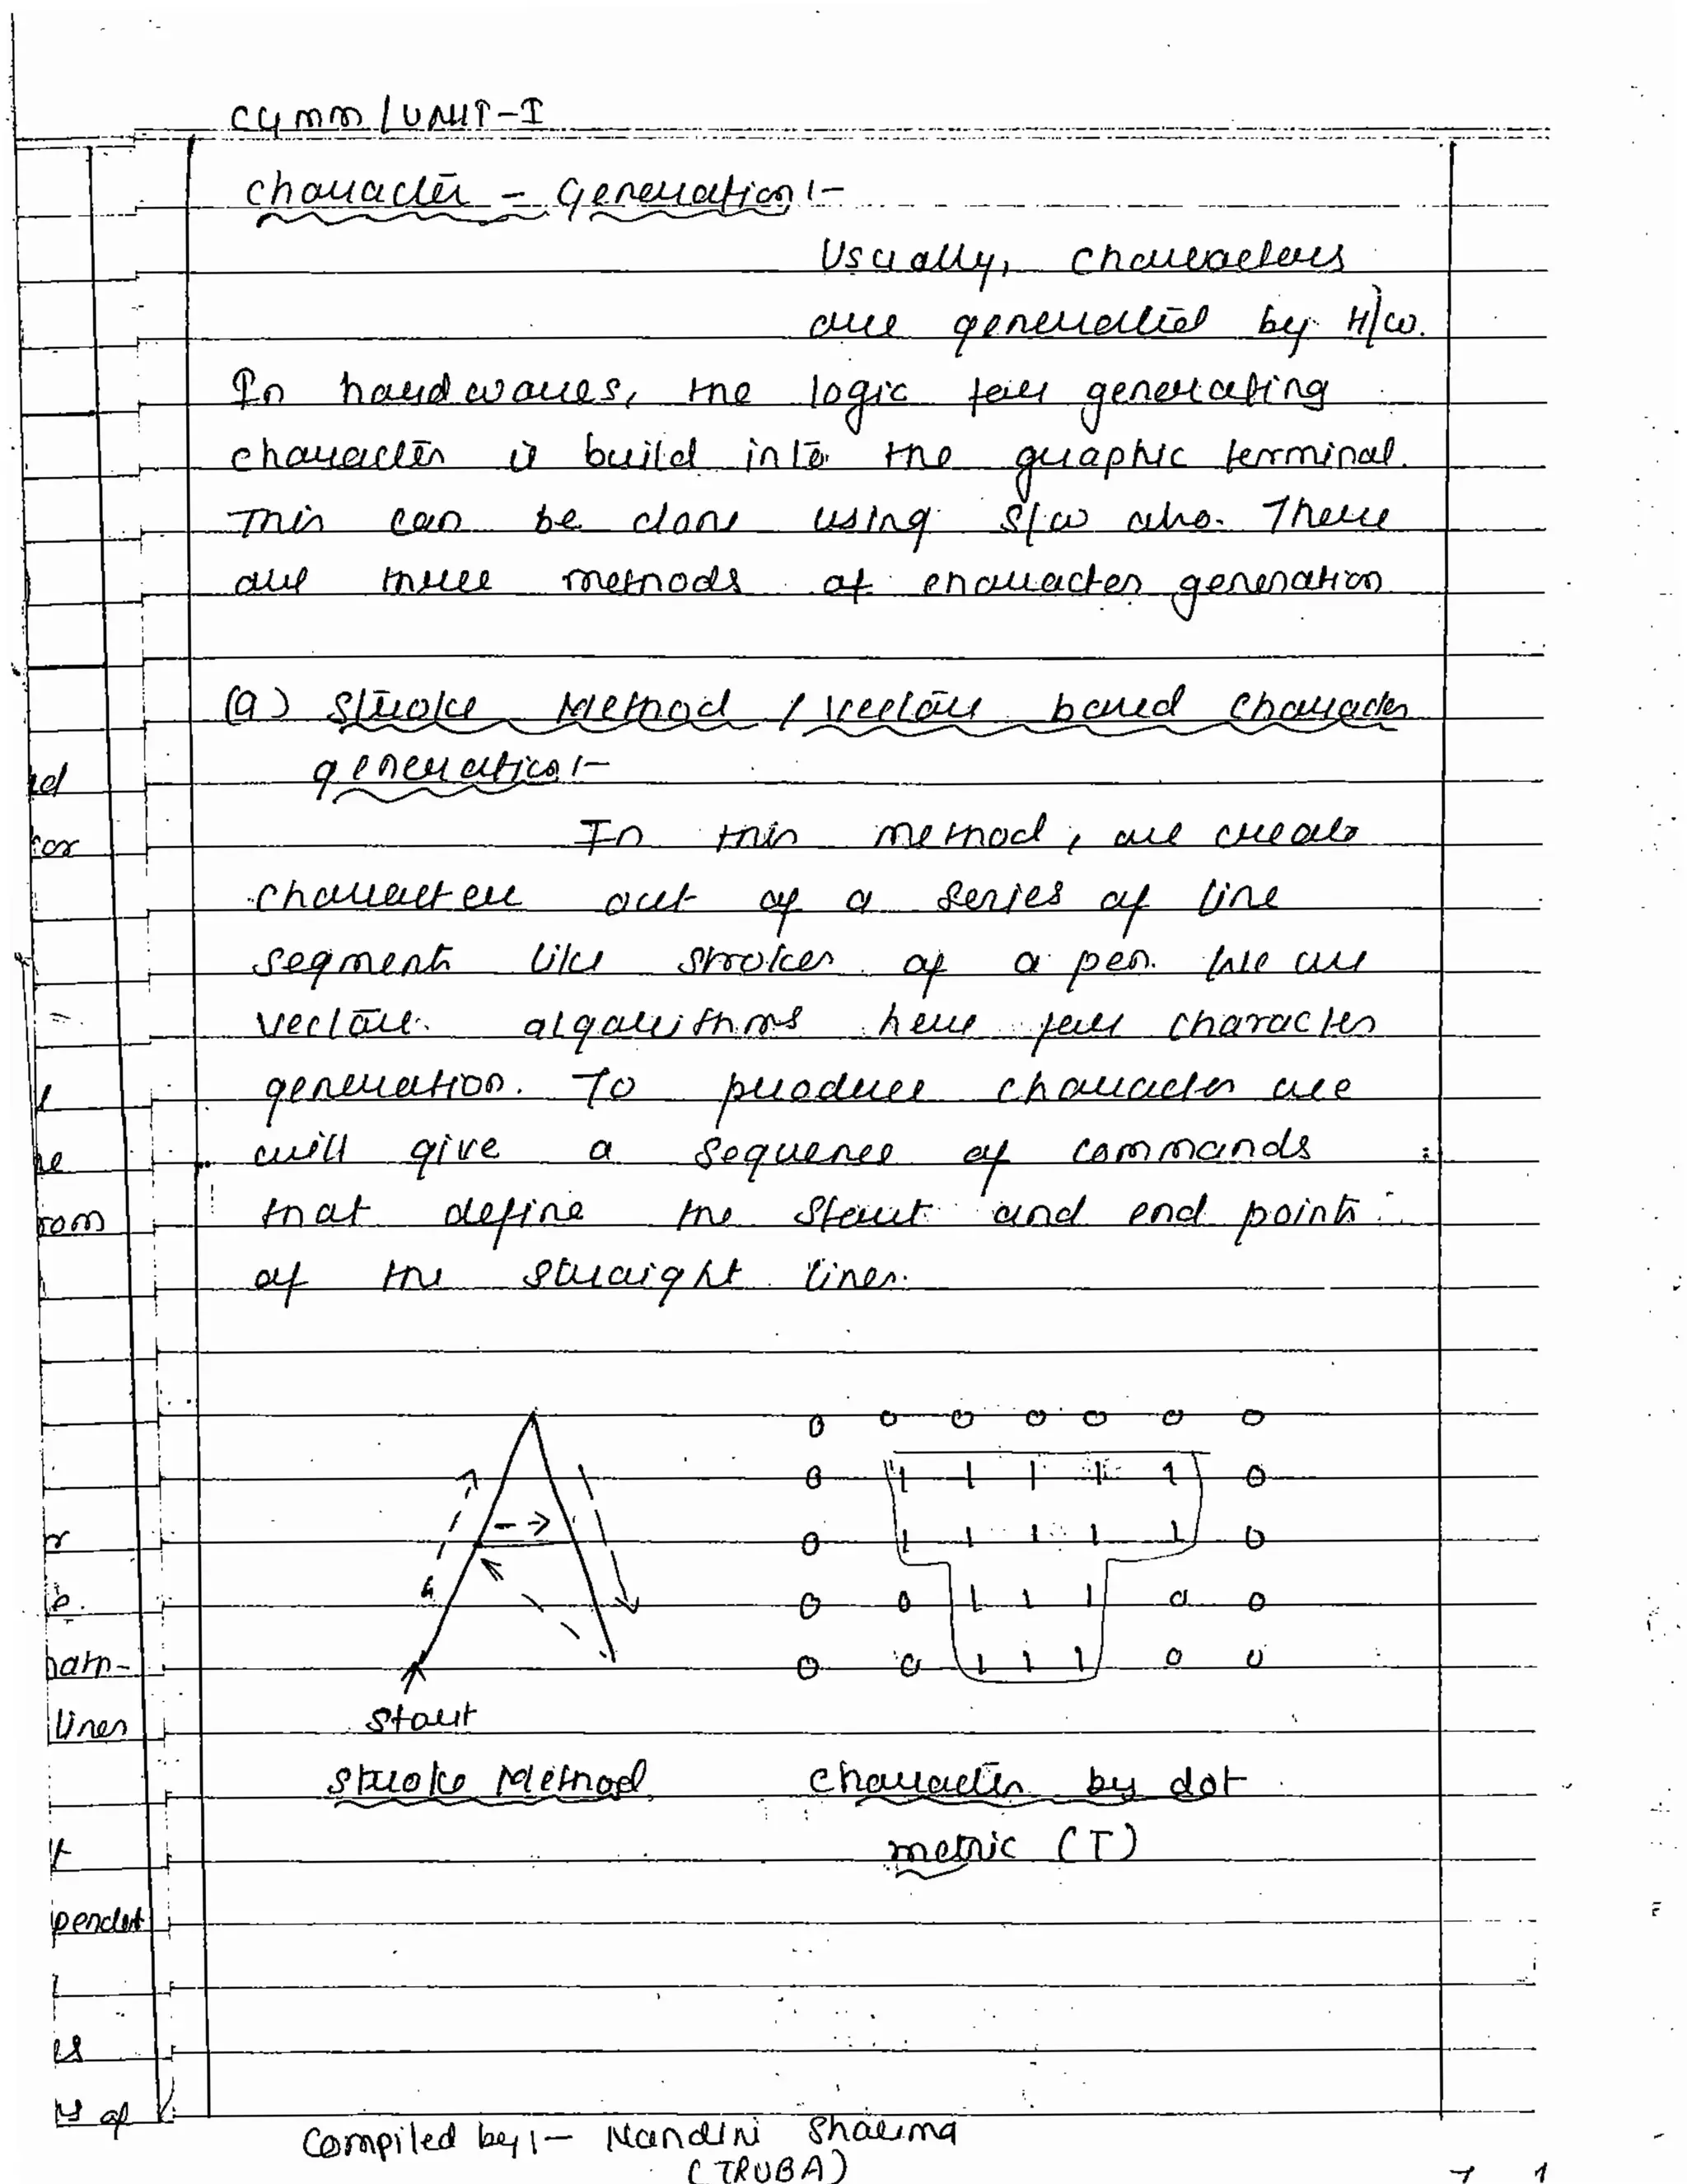 CGMM/UNIT-I
Character - Generation:-
Usually, characters
are generated by H/W.
In hardwares, the logic for generating
character is build into the graphic terminal.
This can be done using S/W also. There
are three methods of character generation
(a) Stroke Method / Vector based Character
generation:-
In this method, we create
character out of a series of line
segments like strokes of a pen. We use
vector algorithms here for character
generation. To produce character we
will give a sequence of commands
that define the start and end points
of the straight lines.
0 0 0 0 0 0 0
0 1 1 1 1 1 0
0 1 1 1 1 1 0
0 0 1 1 1 0 0
0 0 1 1 1 0 0
Start
Stroke Method
Character by dot
metric (T)
Compiled by:- Nandini Sharma
(TRUBA)
lines
pendet